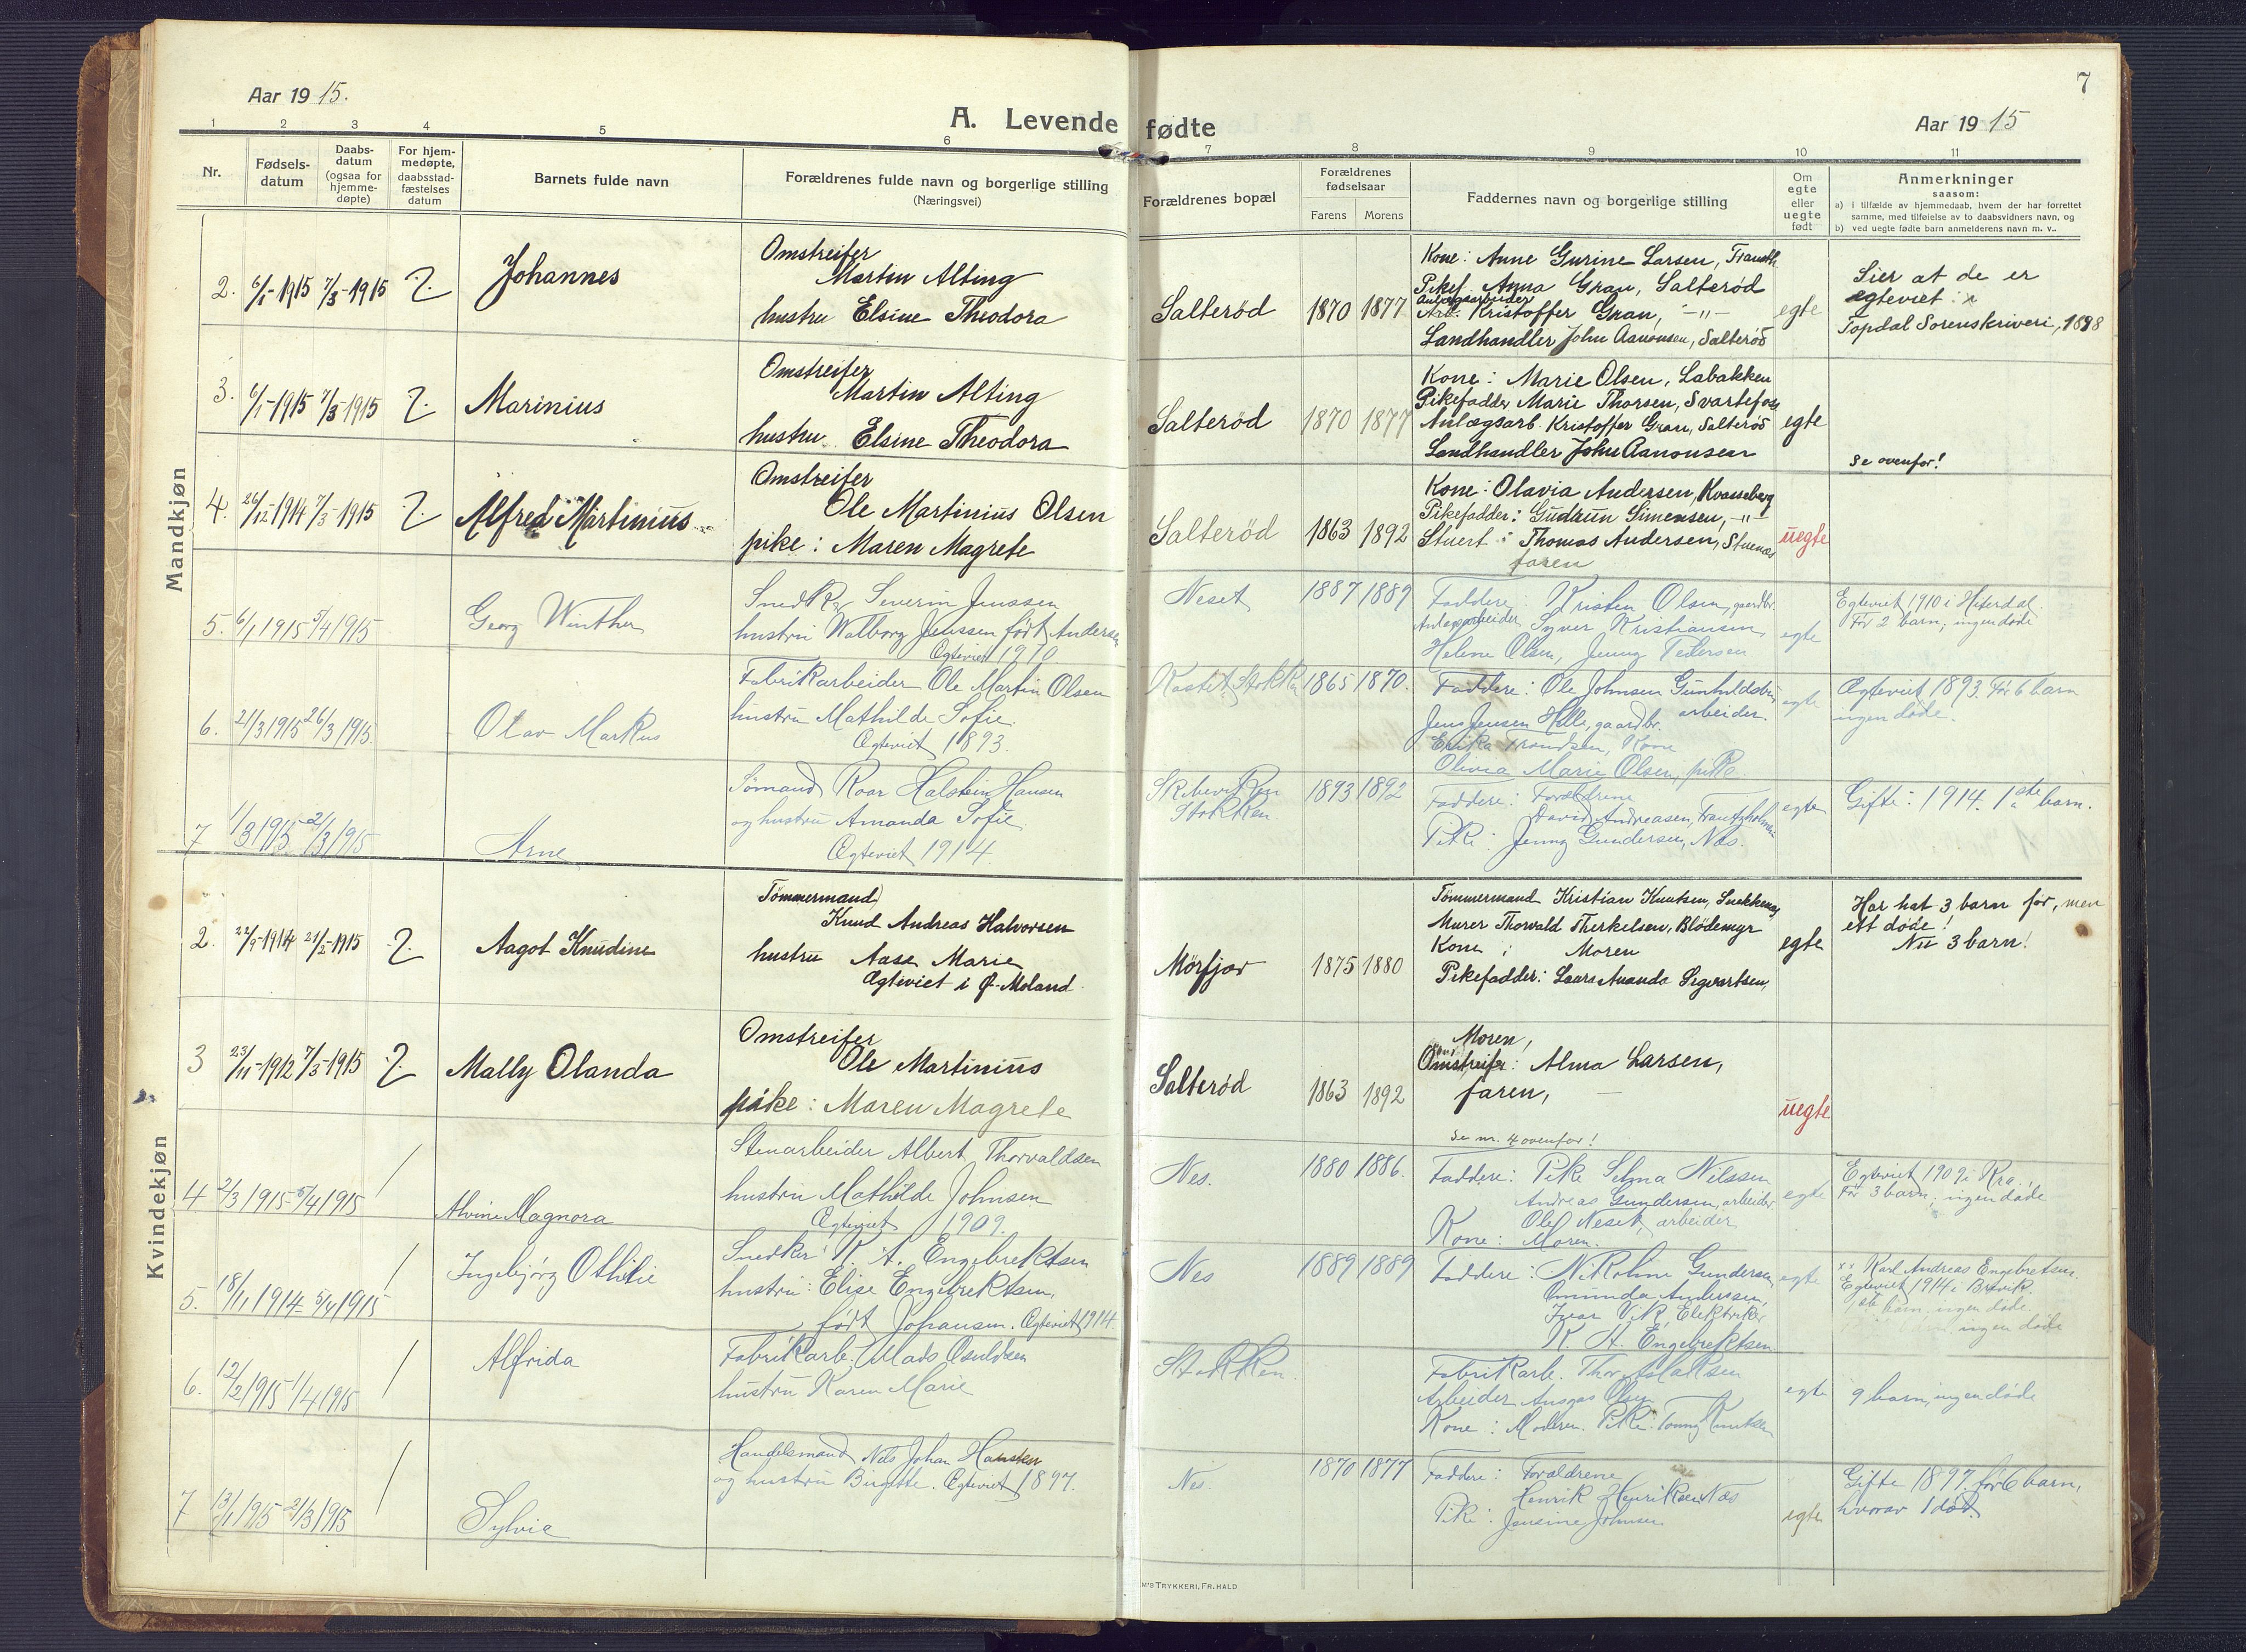 7
Aar 19 15.
A. Levende fødte
Aar 19 15
1 2 3 4 5 6 7 8 9 10 11
Nr.
Fødsels-
datum
Daabs-
datum
(ogsaa for
hjemme-
døpte)
For hjem-
medøpte,
daabsstad-
fæstelses
datum
Barnets fulde navn
Forældrenes fulde navn og borgerlige stilling
(Næringsvei)
Forældrenes bopæl
Forældrenes
fødselsaar
Farens Morens
Faddernes navn og borgerlige stilling
Om
egte
eller
uegte
født
Anmerkninger
saasom:
a) i tilfælde av hjemmedaab, hvem der har forrettet
samme, med tilføielse av to daabsvidners navn, og
b) ved uegte fødte barn anmelderens navn m. v..
Mandkjøn
2. 6/1-1915 7/3-1915 Johannes
Omstreifer
Martin Alting
hustru Elsine Theodora
Salterød 1870 1877
Kone: Anne Gurine Larsen,
Pikef. Anna Gran, Salterød
Anlægsarbeider
Arb. Kristoffer Gran, -"-
Landhandler John Aanonsen, Salterød
egte
Sier at de er
egteviet i
Topdal Sorenskriveri, 1898
3. 6/1-1915 7/3-1915 Marinius
Omstreifer
Martin Alting
hustru Elsine Theodora
Salterød 1870 1877
Kone: Marie Olsen, Labakken
Pikefadder Marie Thorsen, Svartefos
Anlægsarb. Kristoffer Gran, Salterød
Landhandler John Aanonsen
egte
Se ovenfor!
4. 26/12-1914 7/3-1915 Alfred Martinius
Omstreifer
Ole Martinius Olsen
pike: Maren Magrete
Salterød 1863 1892
Kone: Olavia Andersen, Kvasseberg
Pikefadder: Gudrun Simensen, -"-
Stuert: Thomas Andersen, Stuenes
faren
uegte
5. 6/1 1915 5/4 1915 Georg Winther
Snedker Severin Jenssen
hustru Walborg Jenssen født Andersen
Ægteviet 1910
Neset 1887 1889
Faddere: Kristen Olsen, gaardbr.
Anlægsarbeider Syver Kristiansen,
Helene Olsen, Jenny Pedersen
egte
Egteviet 1910 i Hiterdal.
Før 2 barn; ingen døde
6. 21/3 1915 26/3 1915 Olav Markus
Fabrikarbeider Ole Martin Olsen
hustru Mathilde Sofie.
Ægteviet 1893.
Kastet, Stokken 1865 1870.
Faddere: Ole Johnsen Gunhildsbu
arbeider.
Jens Jensen Helle, gaardbr.
Erika Trondsen, Kone
Olivia Marie Olsen, pike.
egte
Ægteviet 1893. Før 6 barn
ingen døde.
7 1/3 1915 21/3 1915 Arne
Sømand Roar Halstein Hansen
og hustru Amanda Sofie.
Ægteviet 1914.
Skibeviken
Stokken. 1893 1892
Faddere: Forældrene
David Andreasen, Frantzholmen
Pike: Jenny Gundersen, Næs.
egte
Gifte: 1914. 1ste barn.
Kvindekjøn
2. 22/9-1914 21/2-1915 Aagot Knudine
Tömmermand
Knud Andreas Halvorsen
hustru Aase Marie
Ægteviet i Ø-Moland.
Mørfjær 1875 1880
Tömmermand Kristian Knutsen, Snekkenes
Murer Thorvald Therkelsen, Blödemyr
Kone: Moren
Pikefadder: Laura Amanda Segvartsen,
egte
Har hat 3 barn før, men
ett døde!
Nu 3 barn!
3 23/11-1912 7/3-1915 Mally Olanda
Omstreifer
Ole Martinius
pike: Maren Magrete
Salterød 1863 1892
Moren,
Omstreifer: Alma Larsen,
faren,
Se nr. 4 ovenfor!
uegte
4 2/3 1915 5/4 1915 / Alvine Magnora
Stenarbeider Albert Thorvaldsen
hustru Mathilde Johnsen
Ægteviet 1909.
Nes. 1880 1886.
Faddere: Pike Selma Nilssen
Andreas Gundersen, arbeider
Olaf Neset, arbeider
Kone: Moren.
egte
Egteviet 1909 i Kra.,
Før 3 barn; ingen døde
5. 18/11 1914 5/4 1915 / Ingebjørg Othilie
Snedker K. A. Engebrektsen
hustru: Elise Engebrektsen,
født Johansen. Ægteviet 1914.
Nes 1889 1889
Faddere: Nikoline Gundersen
Omunda Anderssen,
Ivar Vik, Elektriker
K. A. Engebrektsen
egte
xx Karl Andreas Engebretsen.
Egteviet 1914 i Brevik.
1ste barn, ingen døde.
ingen døde
6. 12/2 1915 1/4 1915 / Alfrida
Fabrikarb. Mads Osuldsen
hustru Karen Marie
Stokken.
Fabrikarb. Thor Aslaksen
Arbeider Ansgar Olsen
Kone: Moderen. Pike: Tonny Knutsen
egte
9 barn, ingen døde
7 13/1 1915 21/3 1915 / Sylvia
Handelsmand Nels Johan Hansten
og hustru Birgitte. Ægteviet 1897.
Nes. 1870 1877
Faddere: Forældrene
Henrik Henriksen Næs
Pike: Jensine Johnsen
egte
Gifte 1897. før 6 barn,
hvorav 1 død.
M'S TRYKKERI, FR. HALD